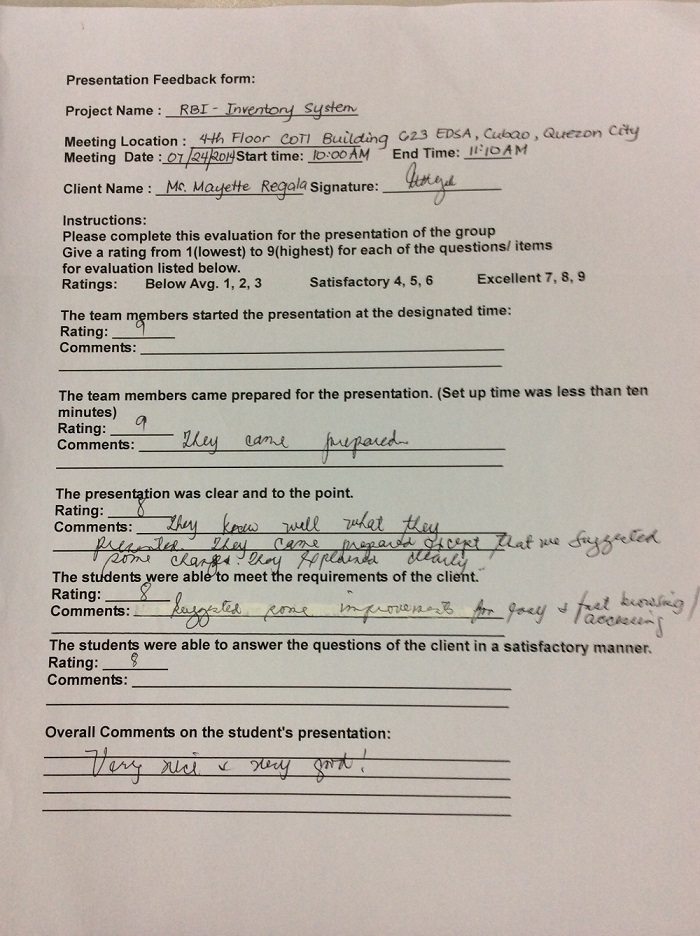 Presentation Feedback form:
Project Name : RBI - Inventory System
Meeting Location : 4th Floor COTI Building 623 EDSA, Cubao, Quezon City
Meeting Date : 07/24/2014 Start time: 10:00AM End Time: 11:10AM
Client Name : Ms. Mayette Regala Signature:
Instructions:
Please complete this evaluation for the presentation of the group
Give a rating from 1(lowest) to 9(highest) for each of the questions/ items
for evaluation listed below.
Ratings: Below Avg. 1, 2, 3 Satisfactory 4, 5, 6 Excellent 7, 8, 9
The team members started the presentation at the designated time:
Rating: 9
Comments:
The team members came prepared for the presentation. (Set up time was less than ten
minutes)
Rating: 9
Comments: They came prepared
The presentation was clear and to the point.
Rating: 8
Comments: They know well what they
presented. They came prepared except that we suggested
some changes. They explained clearly
The students were able to meet the requirements of the client.
Rating: 8
Comments: Suggested some improvements for easy & fast browsing/
accessing
The students were able to answer the questions of the client in a satisfactory manner.
Rating: 8
Comments:
Overall Comments on the student's presentation:
Very nice & very good!